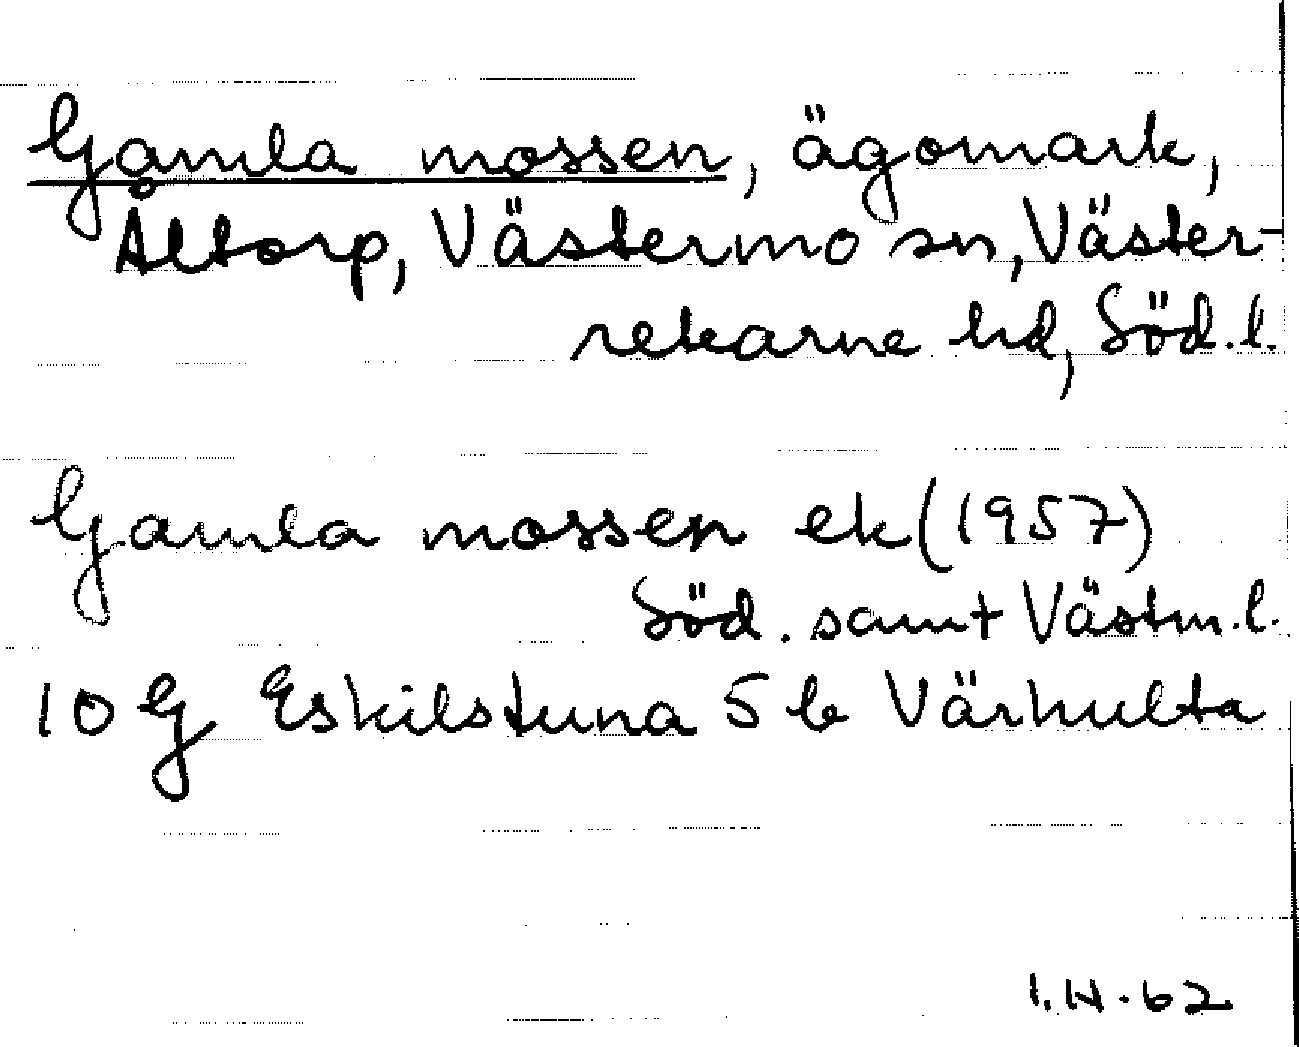 Gamla mossen, ägomark,
Åltorp, Västermo sn, Väster-
rekarne hd, Söd.l.
Gamla mossen ek (1957)
Söd. samt Västm.l.
10 G Eskilstuna 5 b Värhulta
I.H.62